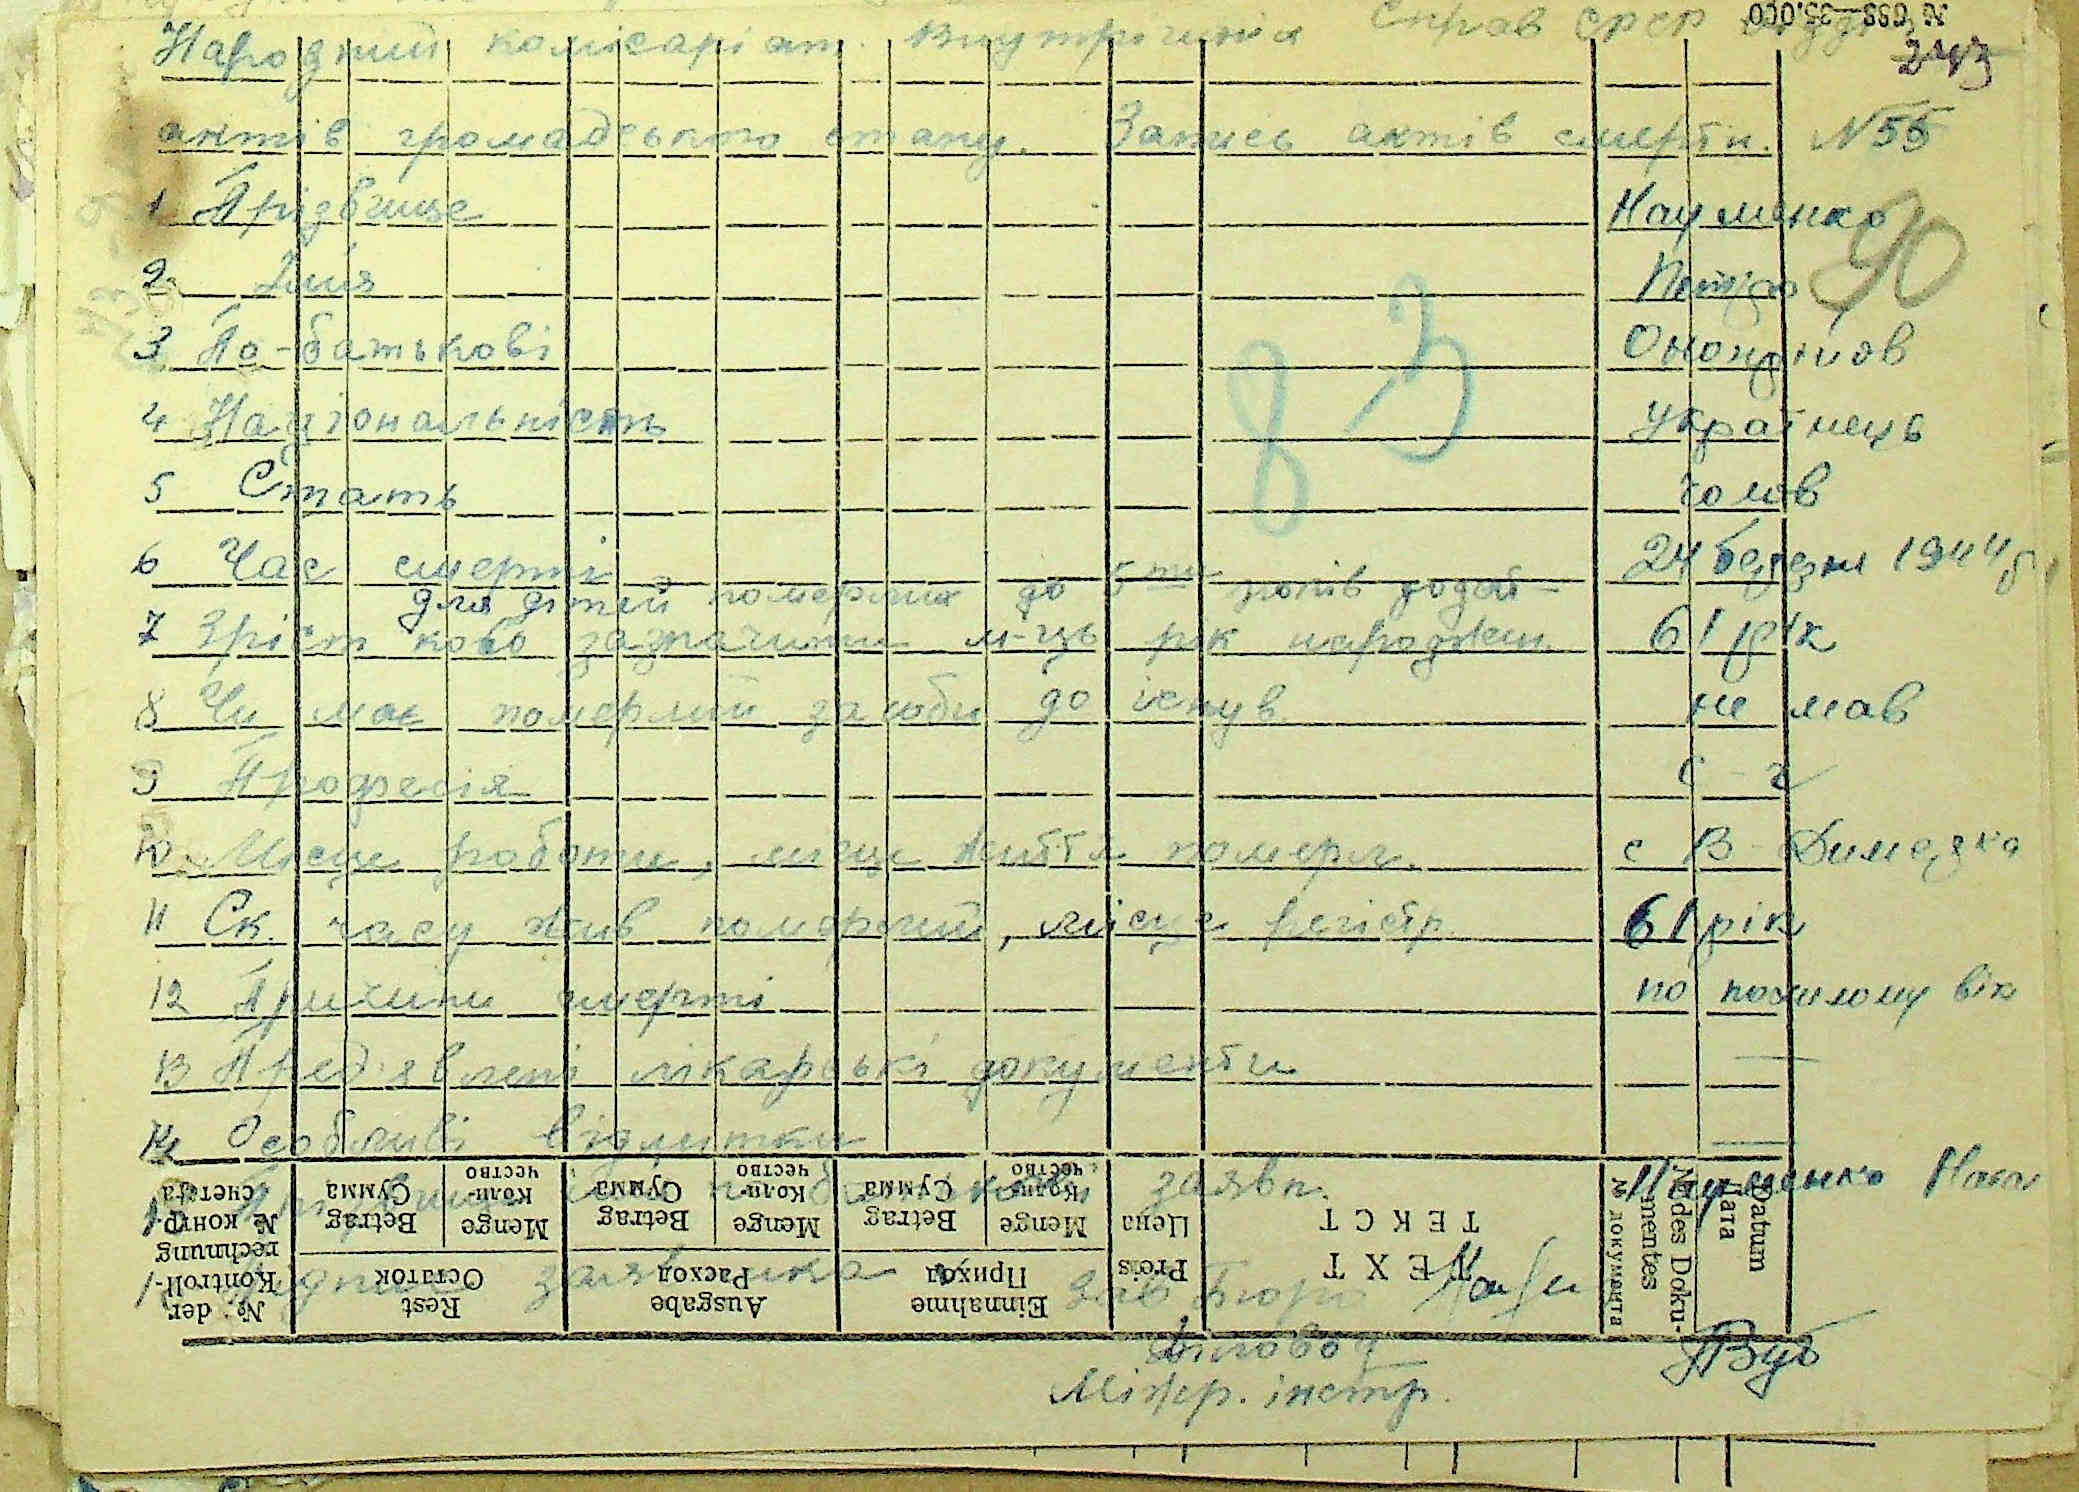 № 688—35.000
Народний комісаріат. Внутрішніх Справ СРСР відділ
243
актів громадського стану. Запись актів смерти. N 55
1 Прізвище Науменко
90
2 Імя Петро
3 По-батькові
4 Національність Українець
83
5 Стать чолов
6 Час смерті 24 березня 1944 р
для дітей померлих до 5ти років додат-
7 Зріст ково зазначити м-ць рік народжен. 61 рік
8 Чи має померлий засоби до існув. не мав
9 Професія с-г
10 Місце роботи, місце життя померл. с В Димерка
11 Ск. часу жив померлий, місце регістр. 61 рік
12 Причини смерті по похилому вік
13 Пред'явлені лікарські документи —
14 Особливі відмітки —
15 Прізвище заявн. Науменко
Підпис заявника Зав Бюро
Діловод
Міжр. інстр.
№ der Kontroll-rechnung
№ контр. счета
Rest
Остаток
Betrag
Сумма
Menge
Коли-чество
Ausgabe
Расход
Betrag
Сумма
Menge
Коли-чество
Einnahme
Приход
Betrag
Сумма
Menge
Коли-чество
Preis
Цена
TEXT
ТЕКСТ
№ des Doku-mentes
№ документа
Datum
Дата